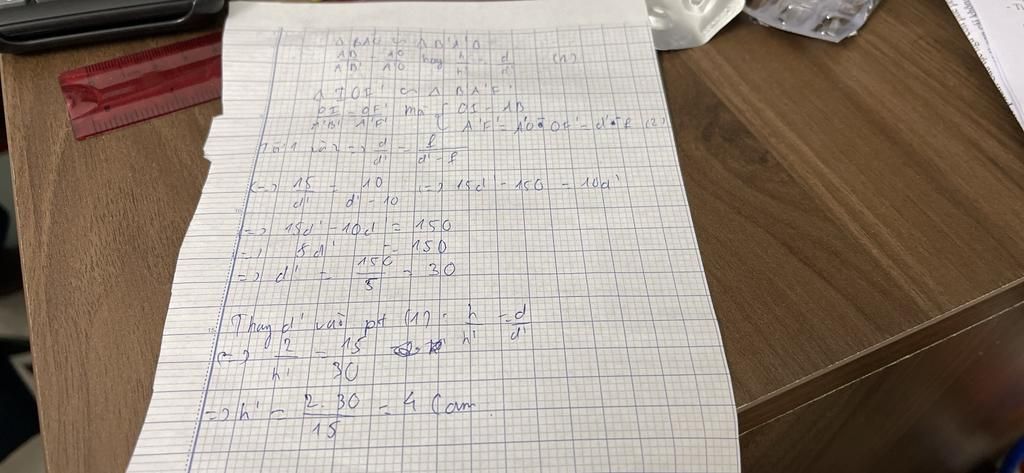 Δ BAO ∽ Δ B'A'O
AB/A'B' = AO/A'O hay h/h' = d/d' (1)
Δ IOF' ∽ Δ B'A'F'
OI/A'B' = OF'/A'F' mà { OI = AB
A'F' = A'O - OF' = d' - f (2)
=> d/d' = f/(d' - f)
<=> 15/d' = 10/(d' - 10) <=> 15d' - 150 = 10d'
=> 15d' - 10d' = 150
=> 5d' = 150
=> d' = 150/5 = 30
Thay d' vào pt (1): h/h' = d/d'
<=> 2/h' = 15/30
=> h' = 2.30/15 = 4 (cm